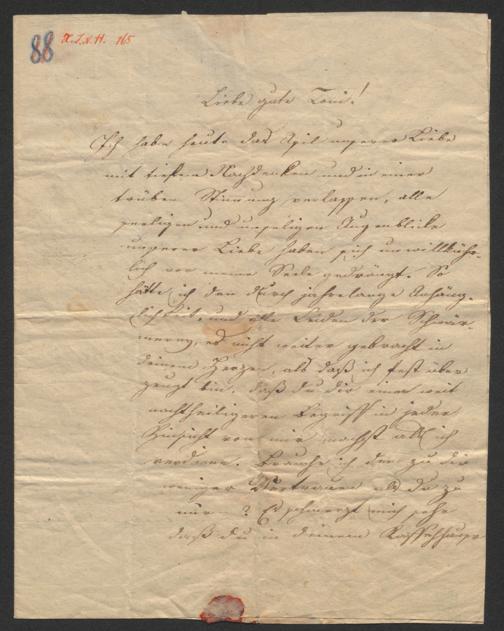 88 X.I.N.H. 165
Liebe gute Toni!
Ich habe heute das Spil unserer Liebe
mit tiefem Nachdenken und in einer
trüben Stimung verlassen, alle
seeligen und unseligen Augenblicke
unserer Liebe haben sich unwillkühr-
lich vor meine Seele gedrängt. So
hätte ich den durch jahrelange Anhäng-
lichkeit, und alle Leiden der Schwär-
merey, es nicht weiter gebracht in
deinem Herzen, als daß ich fest über
zeugt bin, daß du dir einen weit
nachtheiligeren Begriff in jeder
Hinsicht von mir machst als ich
verdiene. Brauche ich den zu dir
weniger Vertrauen als du zu
mir? Es schmerzt mich sehr
daß du in deinem